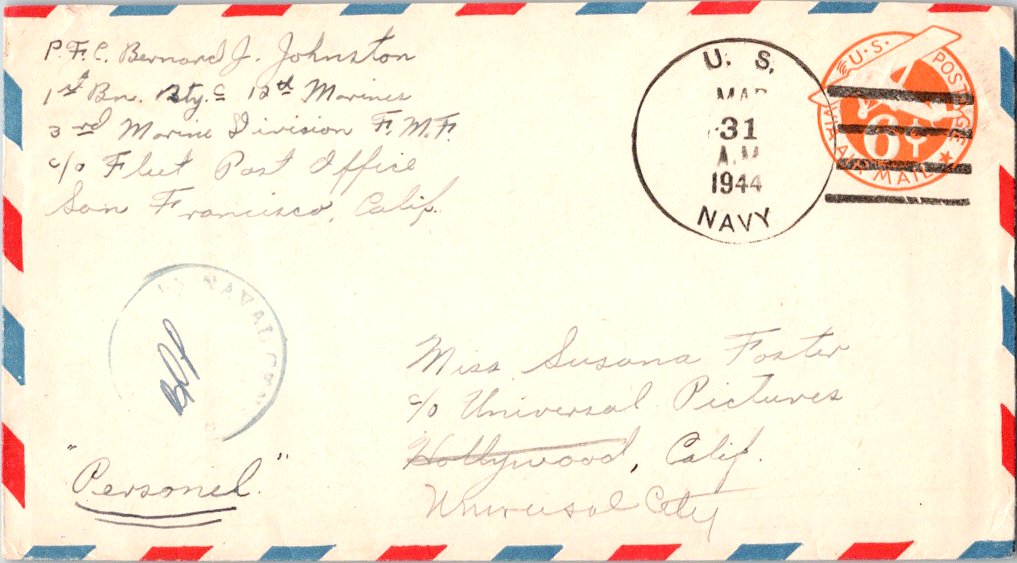 P.F.C. Bernard J. Johnston
1st Bn. Bty. C 12th Marines
3rd Marine Division F.M.F.
c/o Fleet Post Office
San Francisco, Calif.
U. S.
MAR
31
A.M
1944
NAVY
U.S. POSTAGE
VIA AIR MAIL
6¢
NAVAL
Miss Susana Foster
c/o Universal Pictures
Hollywood, Calif.
Universal City
"Personel."